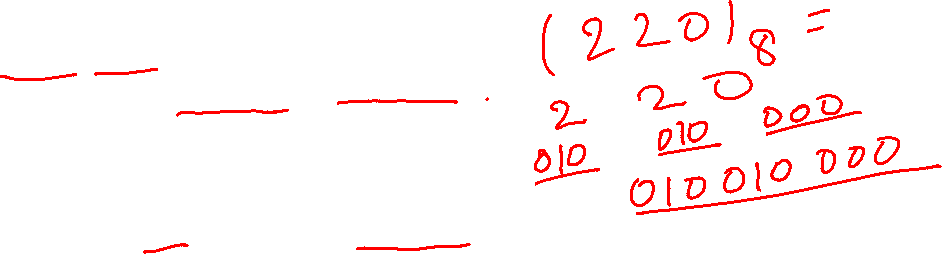 (220)8 =
2 2 0
010 010 000
010010 000